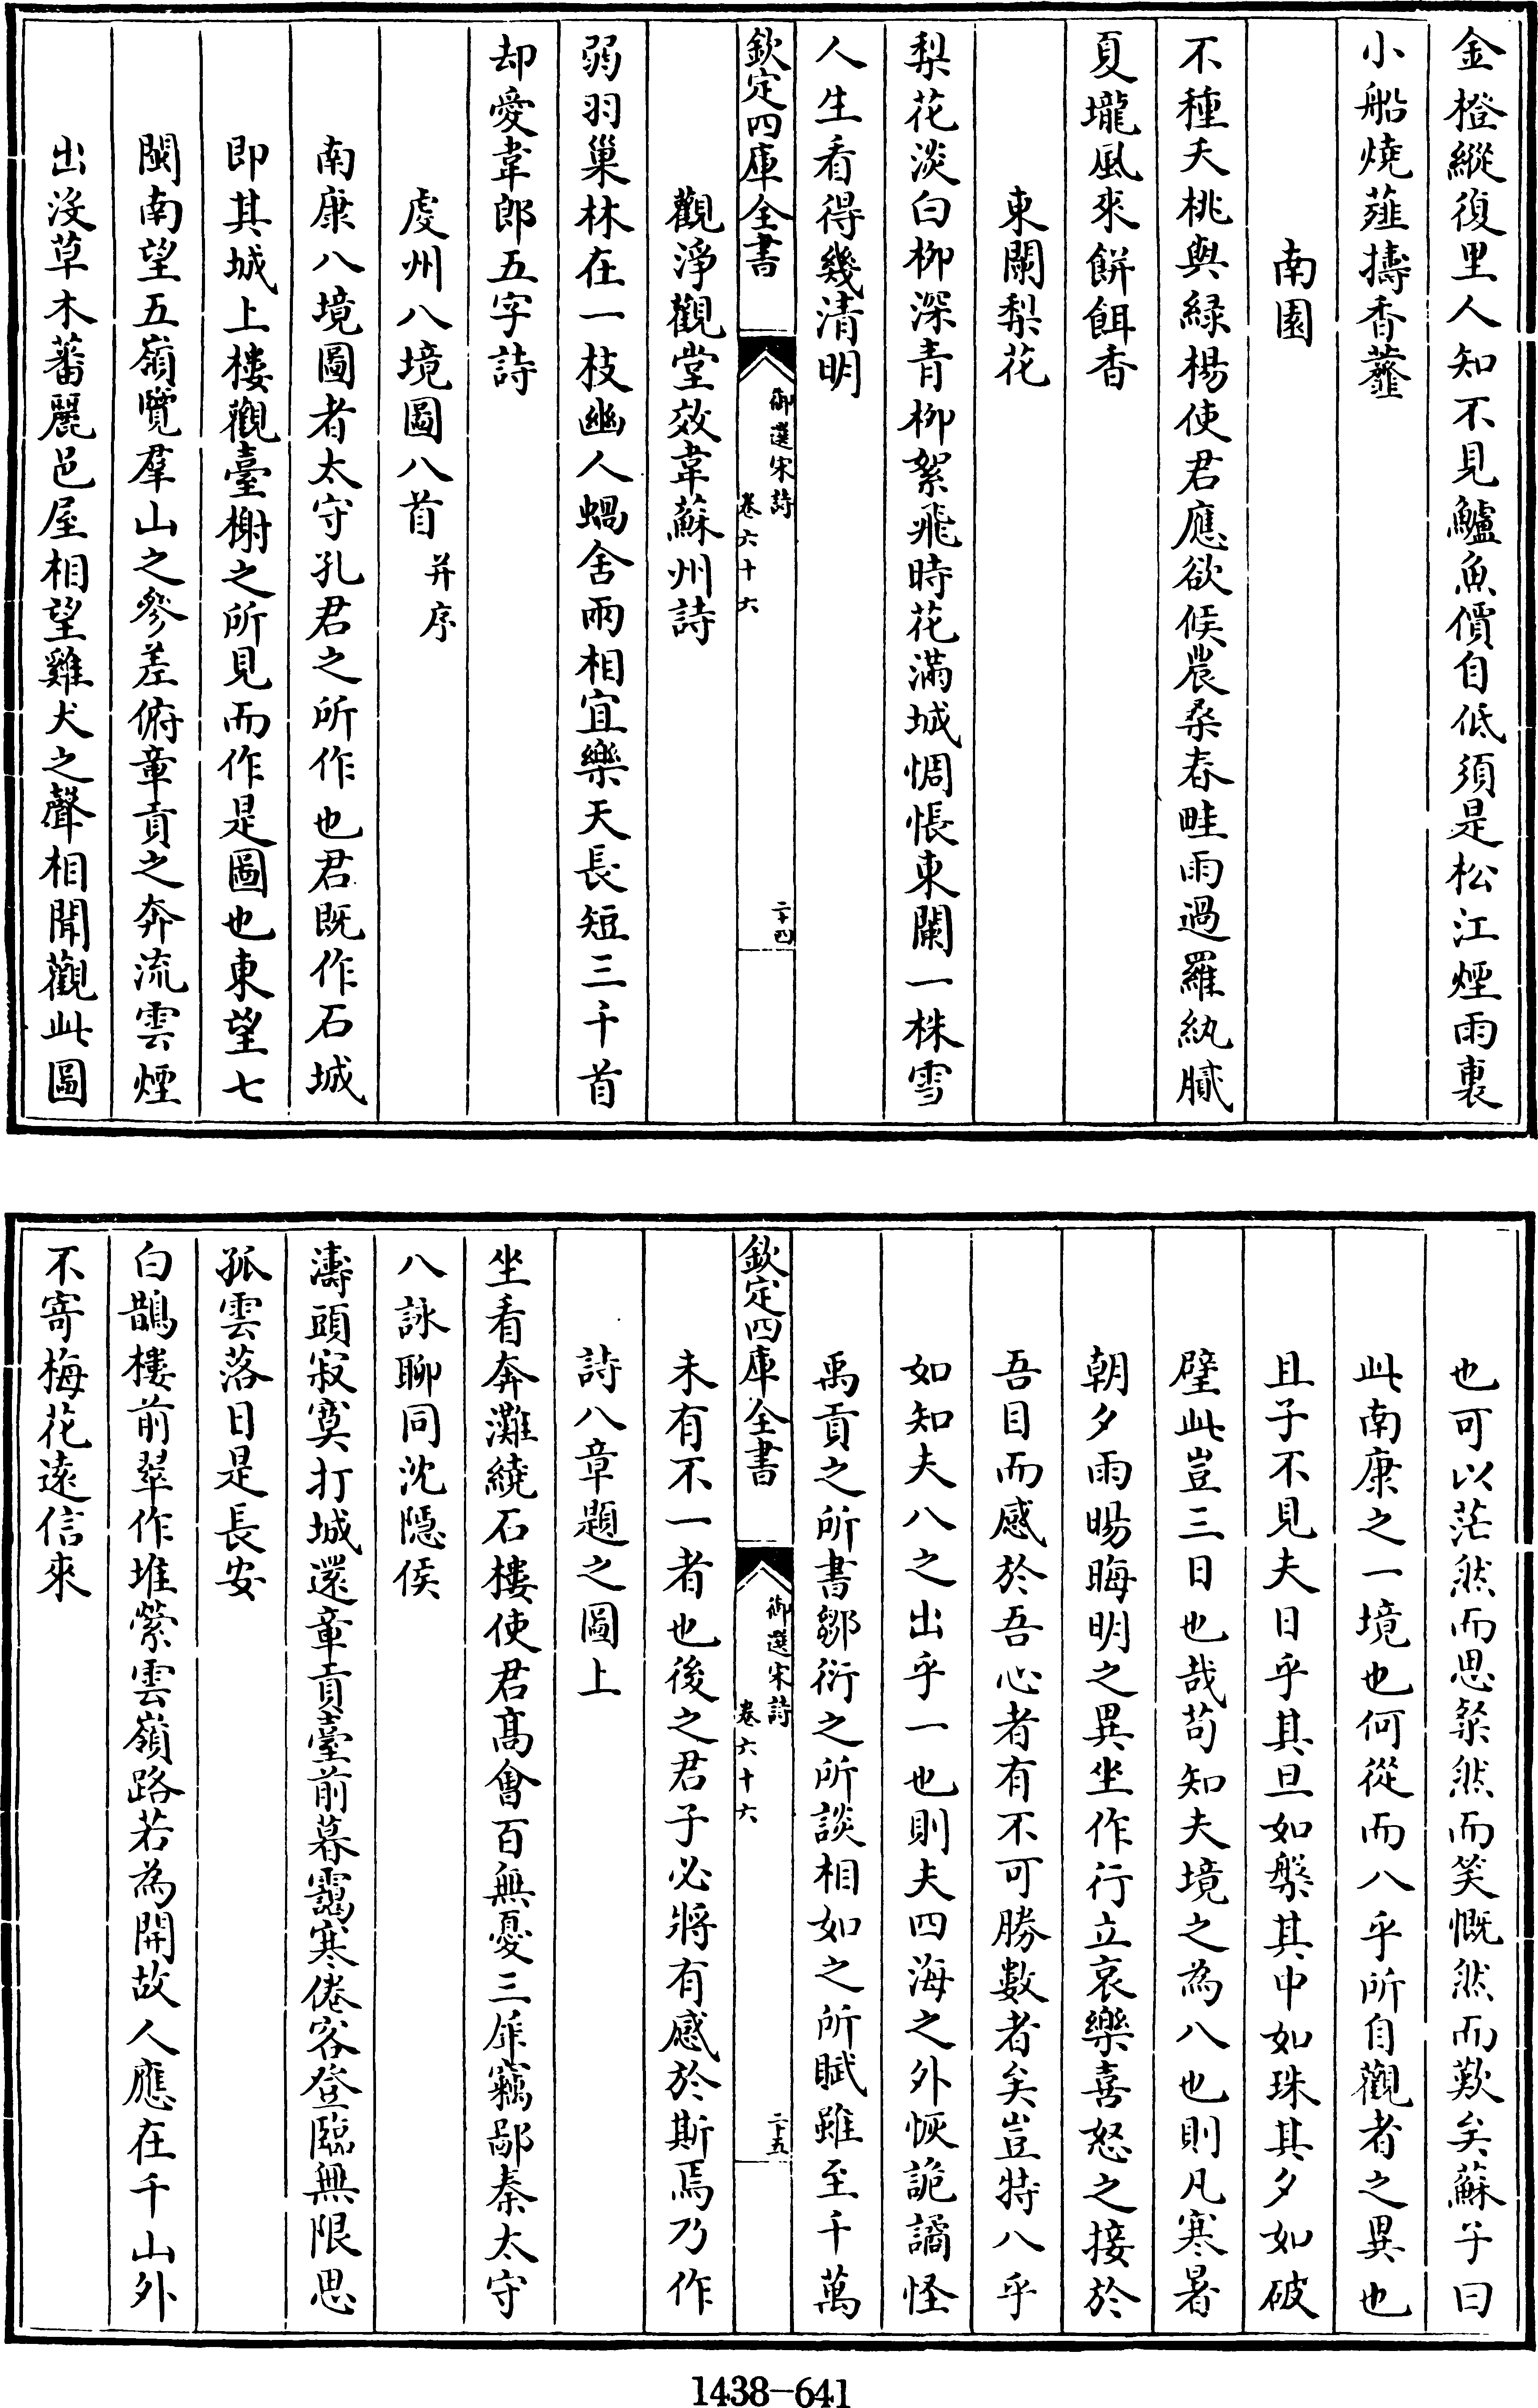 金橙縱復里人知不見鱸魚價自低須是松江煙雨裏
小船燒薤擣香虀
南園
不種夭桃與緑楊使君應欲候農桑春畦雨過羅紈膩
夏壠風來餅餌香
東闌梨花
梨花淡白柳深青柳絮飛時花滿城惆悵東闌一株雪
人生看得幾清明
欽定四庫全書
御選宋詩
卷六十六
二十四
觀淨觀堂效韋蘇州詩
弱羽巢林在一枝幽人蝸舍兩相宜樂天長短三千首
却愛韋郎五字詩
虔州八境圖八首并序
南康八境圖者太守孔君之所作也君既作石城
即其城上樓觀臺榭之所見而作是圖也東望七
閩南望五嶺覽羣山之參差俯章貢之奔流雲煙
出没草木蕃麗邑屋相望雞犬之聲相聞觀此圖
也可以茫然而思粲然而笑慨然而歎矣蘇子曰
此南康之一境也何從而八乎所自觀者之異也
且子不見夫日乎其旦如槃其中如珠其夕如破
璧此豈三日也哉苟知夫境之為八也則凡寒暑
朝夕雨暘晦明之異坐作行立哀樂喜怒之接於
吾目而感於吾心者有不可勝數者矣豈特八乎
如知夫八之出乎一也則夫四海之外恢詭譎怪
禹貢之所書鄒衍之所談相如之所賦雖至千萬
欽定四庫全書
御選宋詩
卷六十六
二十五
未有不一者也後之君子必將有感於斯焉乃作
詩八章題之圖上
坐看奔灘繞石樓使君髙會百無憂三犀竊鄙秦太守
八詠聊同沈隱侯
濤頭寂寞打城還章貢臺前暮靄寒倦客登臨無限思
孤雲落日是長安
白鵲樓前翠作堆縈雲嶺路若為開故人應在千山外
不寄梅花逺信來
1438-641